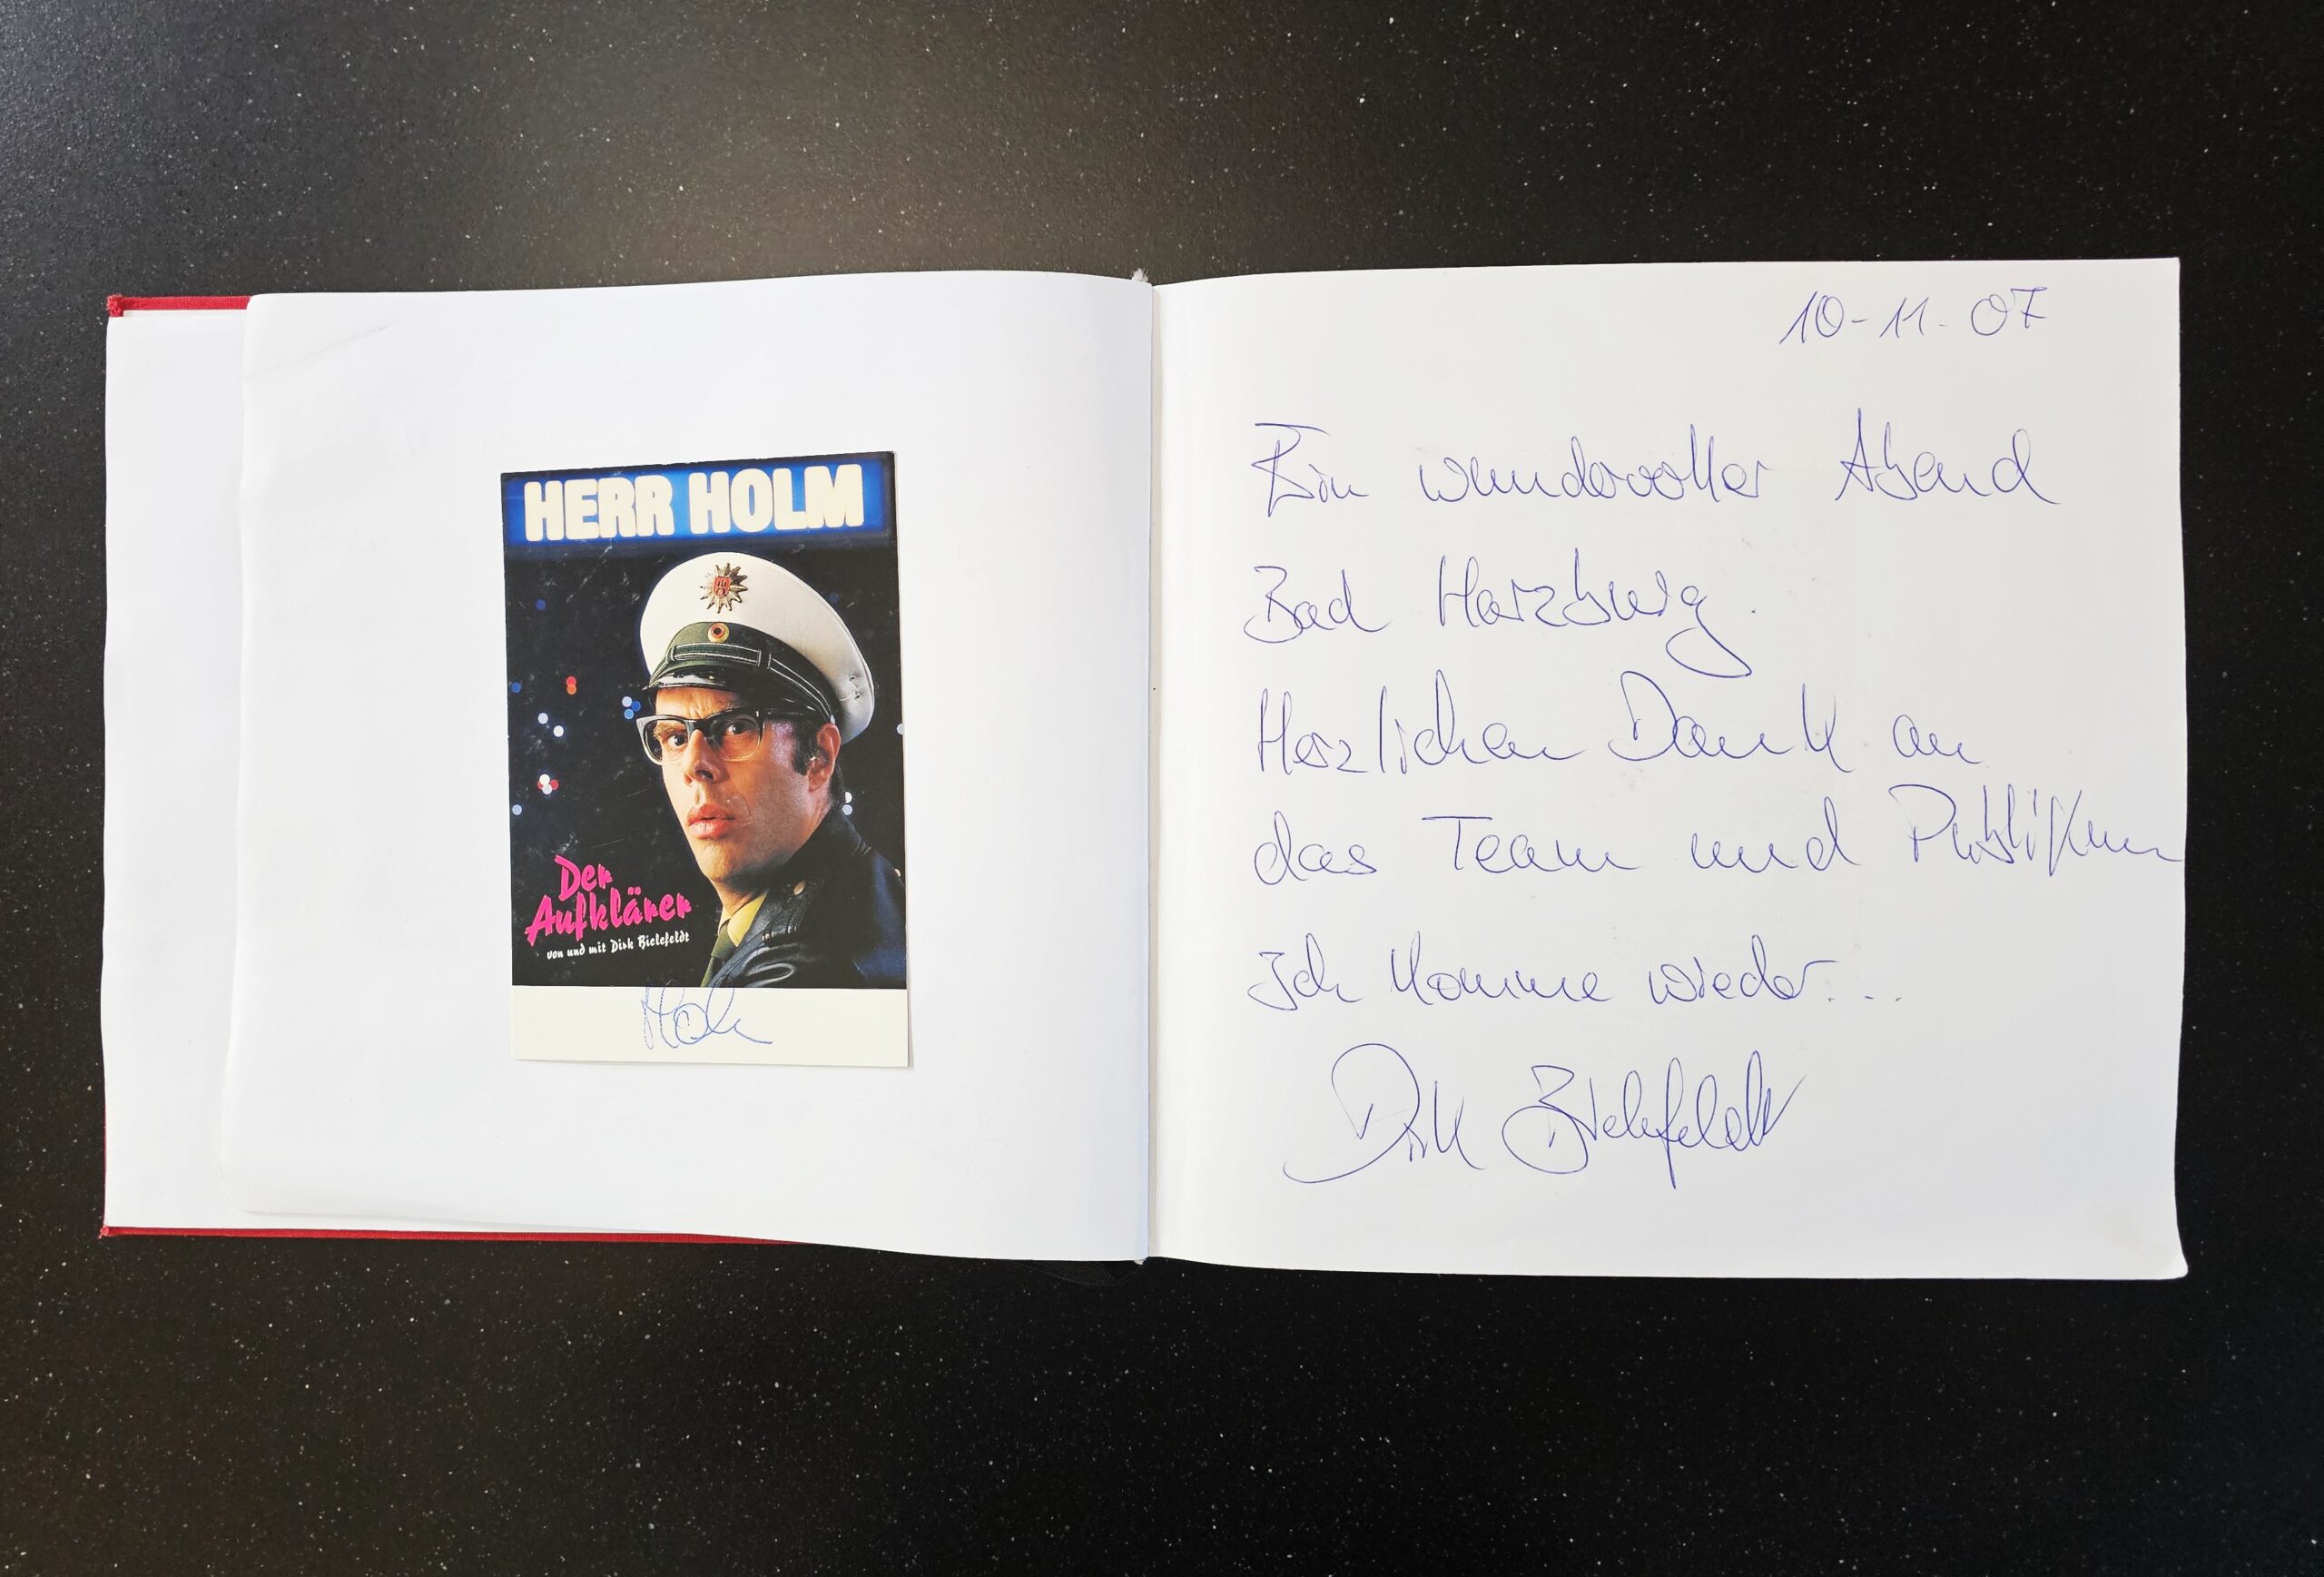 HERR HOLM
Der
Aufklärer
von und mit Dirk Bielefeldt
Holm
10-11-07
Ein wundervoller Abend
Bad Harzburg.
Herzlichen Dank an
das Team und Publikum
Ich komme wieder...
Dirk Bielefeldt